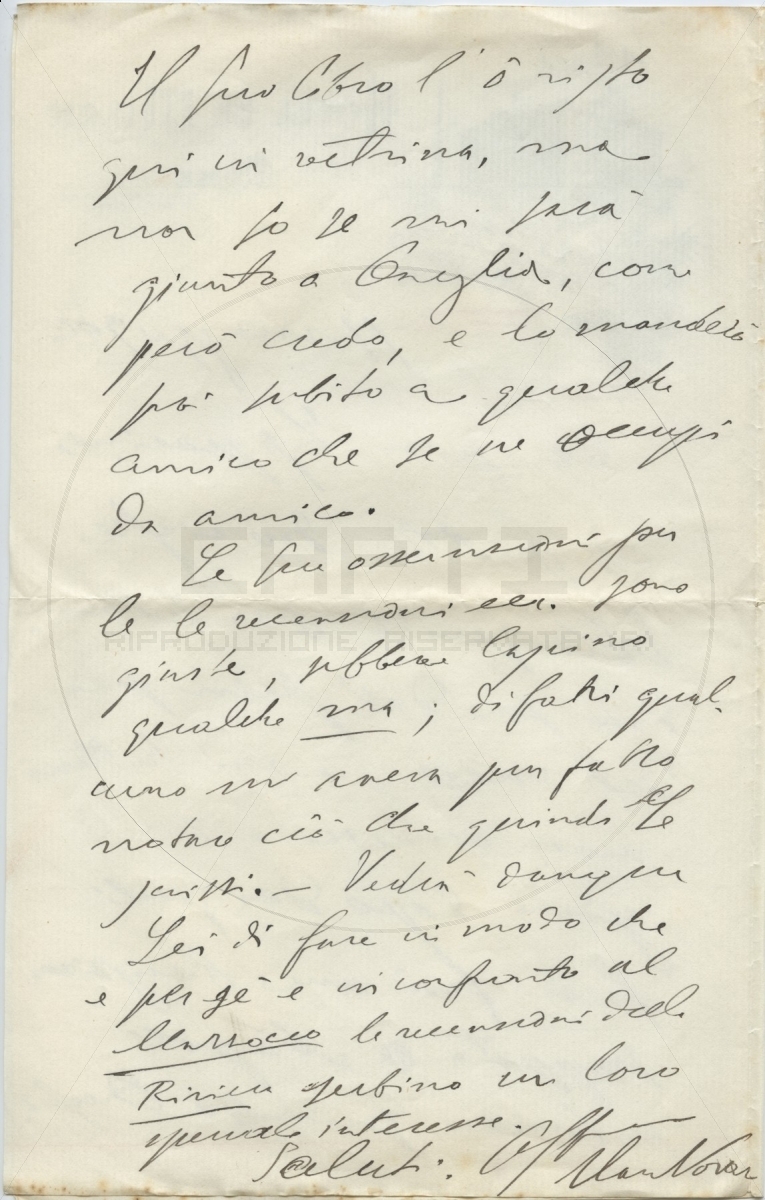 Il suo libro l'ò visto
qui in vetrina, ma
non so se mi sarà
giunto a Oneglia, come
però credo, e lo manderò
poi subito a qualche
amico che se ne occupi
da amico.
Le sue osservazioni per
le le recensioni ecc. sono
giuste, sebbene capino
qualche ma; difatti qual-
cuno mi aveva pur fatto
notare ciò che quindi Le
scrissi. — Vedrà dunque
Lei di fare in modo che
e per sé e in confronto al
Marzocco le recensioni della
Riviera serbino un loro
speciale interesse.
Saluti. Aff
Mario Novaro
CARTI
RIPRODUZIONE RISERVATA